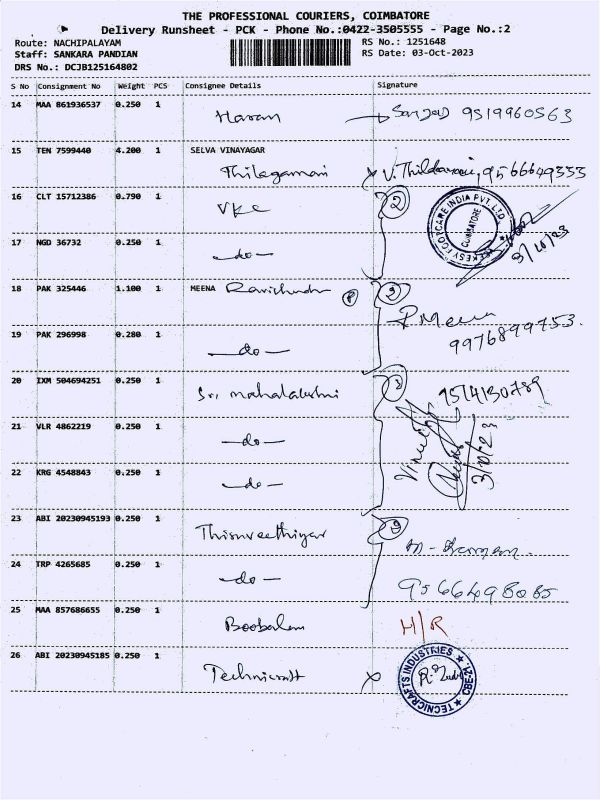 THE PROFESSIONAL COURIERS, COIMBATORE
Delivery Runsheet - PCK - Phone No.:0422-3505555 - Page No.:2
Route: NACHIPALAYAM
RS No.: 1251648
Staff: SANKARA PANDIAN
RS Date: 03-Oct-2023
DRS No.: DCJB125164802
S No Consignment No Weight PCS Consignee Details Signature
14 MAA 861936537 0.250 1 Haran 9519960563
15 TEN 7599440 4.200 1 SELVA VINAYAGAR
Thilagamani 9566649333
16 CLT 15712386 0.790 1 VKC 2
FOOTCARE INDIA PVT. LTD.
COIMBATORE
3/10/23
17 NGD 36732 0.250 1 -do-
18 PAK 325446 1.100 1 MEENA Ravichandran P 2
P Meena
9976899753
19 PAK 296998 0.280 1 -do-
20 IXM 504694251 0.250 1 Sri mahalakshmi 3
21 VLR 4862219 0.250 1 -do-
3/10/23
22 KRG 4548843 0.250 1 -do-
23 ABI 20230945193 0.250 1 2
24 TRP 4265685 0.250 1 -do-
9566498085
25 MAA 857686655 0.250 1 Boobalan H/R
26 ABI 20230945185 0.250 1 Technicraft X
TECNICRAFTS INDUSTRIES CBE-21